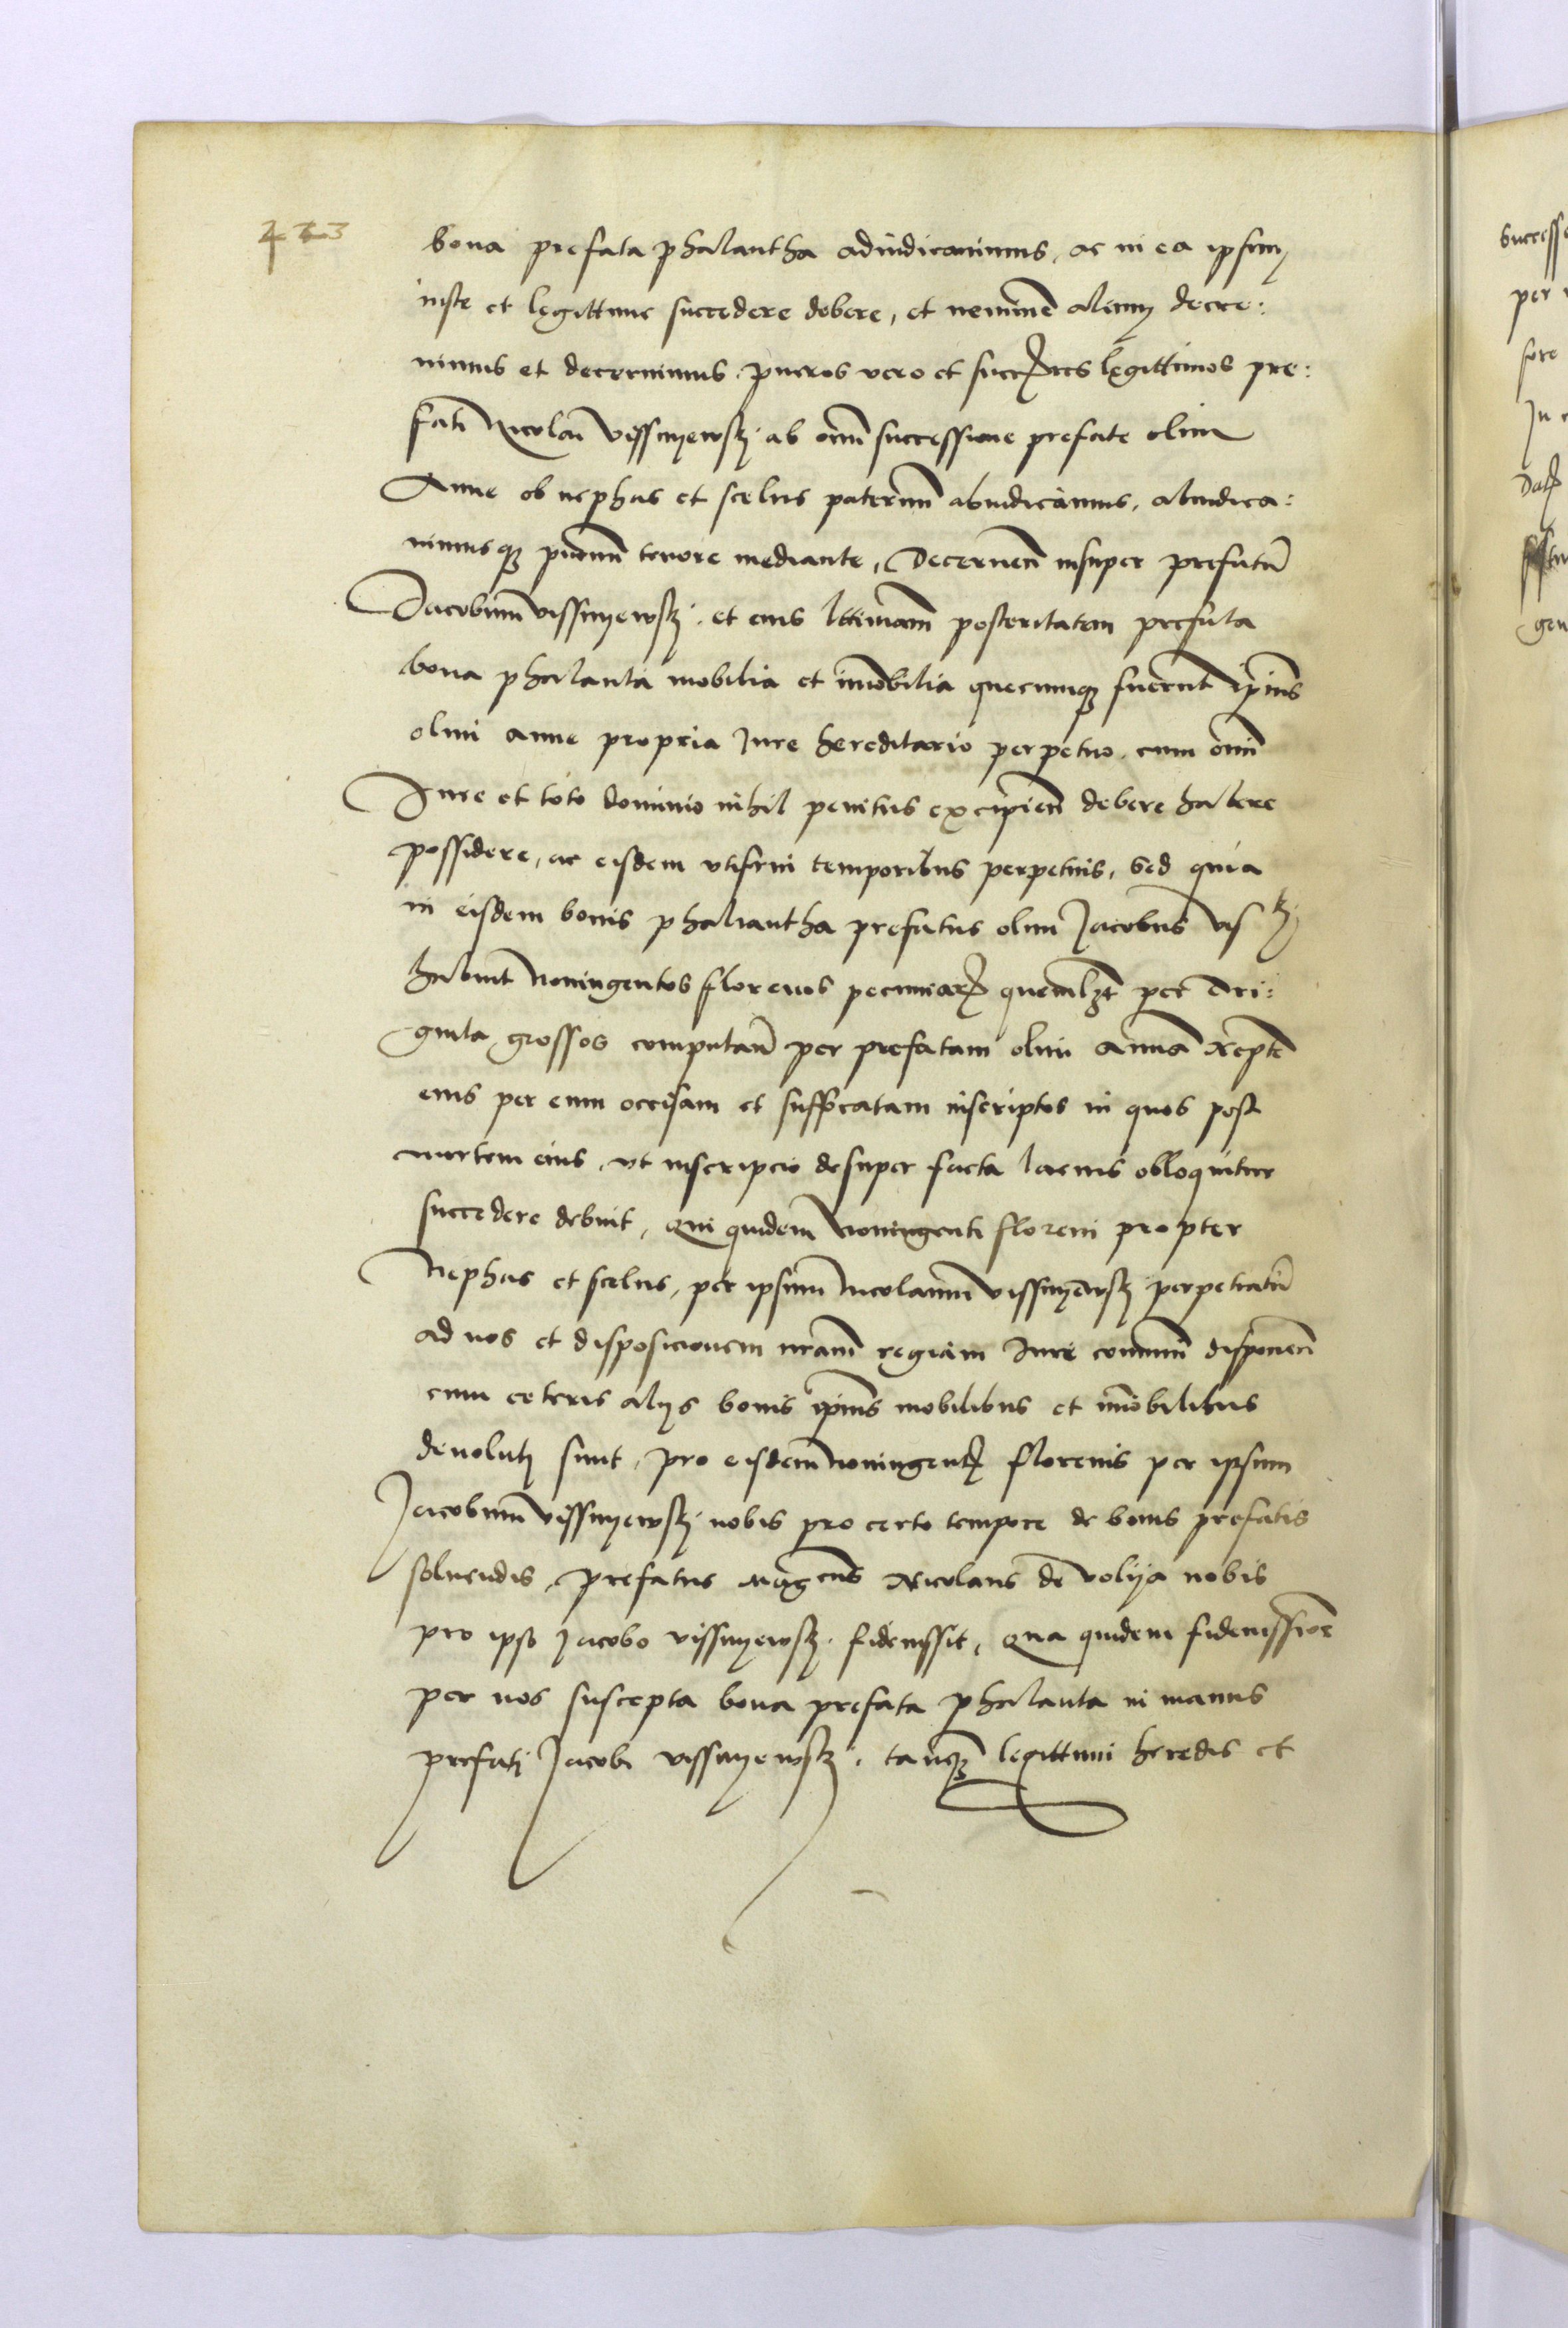 423
bona prefata phalantha adiudicavimus, ac in ea ipsum
iuste et legittime succedere debere, et neminem alium decre:
vimus et decernimus. pueros vero et succes legittimos pre:
fati Nicolai vissnyewskj ab omni successione prefate olim
Anne ob nephas et scelus paternum abiudicamus, abiudica:
vimusque pntium tenore mediante, Decernen insuper prefatum
Jacobum vissnyewskj. et eius lttimam posteritatem prefata
bona phalanta mobilia et imobilia quecunque fuerunt ipius
olim anne propria Jure hereditario perpetuo. cum omni
Jure et toto dominio nihil penitus excipien debere habere
possidere, ac eisdem utifrui temporibus perpetuis, Sed quia
in eisdem bonis phaliantha prefatus olim Jacobus vis kj
habuit Noningentos florenos pecuniar quemlzt per tri:
ginta grossos computan per prefatam olim Annam
eius per eum occisam et suffocatam inscriptos in quos post
mortem eius, ut inscripcio desuper facta lacius obloquitur
succedere debuit, Qui quidem Noningenti floreni propter
Nephas et scelus, per ipsum Nicolaum vissnyewskj perpetratum
ad nos et disposicionem nram regiam Jure communi disponen
cum ceteris alys bonis ipius mobilibus et imobilibus
devoluti sunt, pro eisdem noningent florenis per ipsum
Jacobum vissnyewskj nobis pro certo tempore de bonis prefatis
solvendis, prefatus Magcus Nicolaus de volija nobis
pro ipso Jacobo vissnyewskj. fideiussit, Qua quidem fideiussione
per nos suscepta bona prefata phalanta in manus
prefati Jacobi vissnyewskj, tanqz legittimi heredis et
success
per
fore
In
Dat
gen